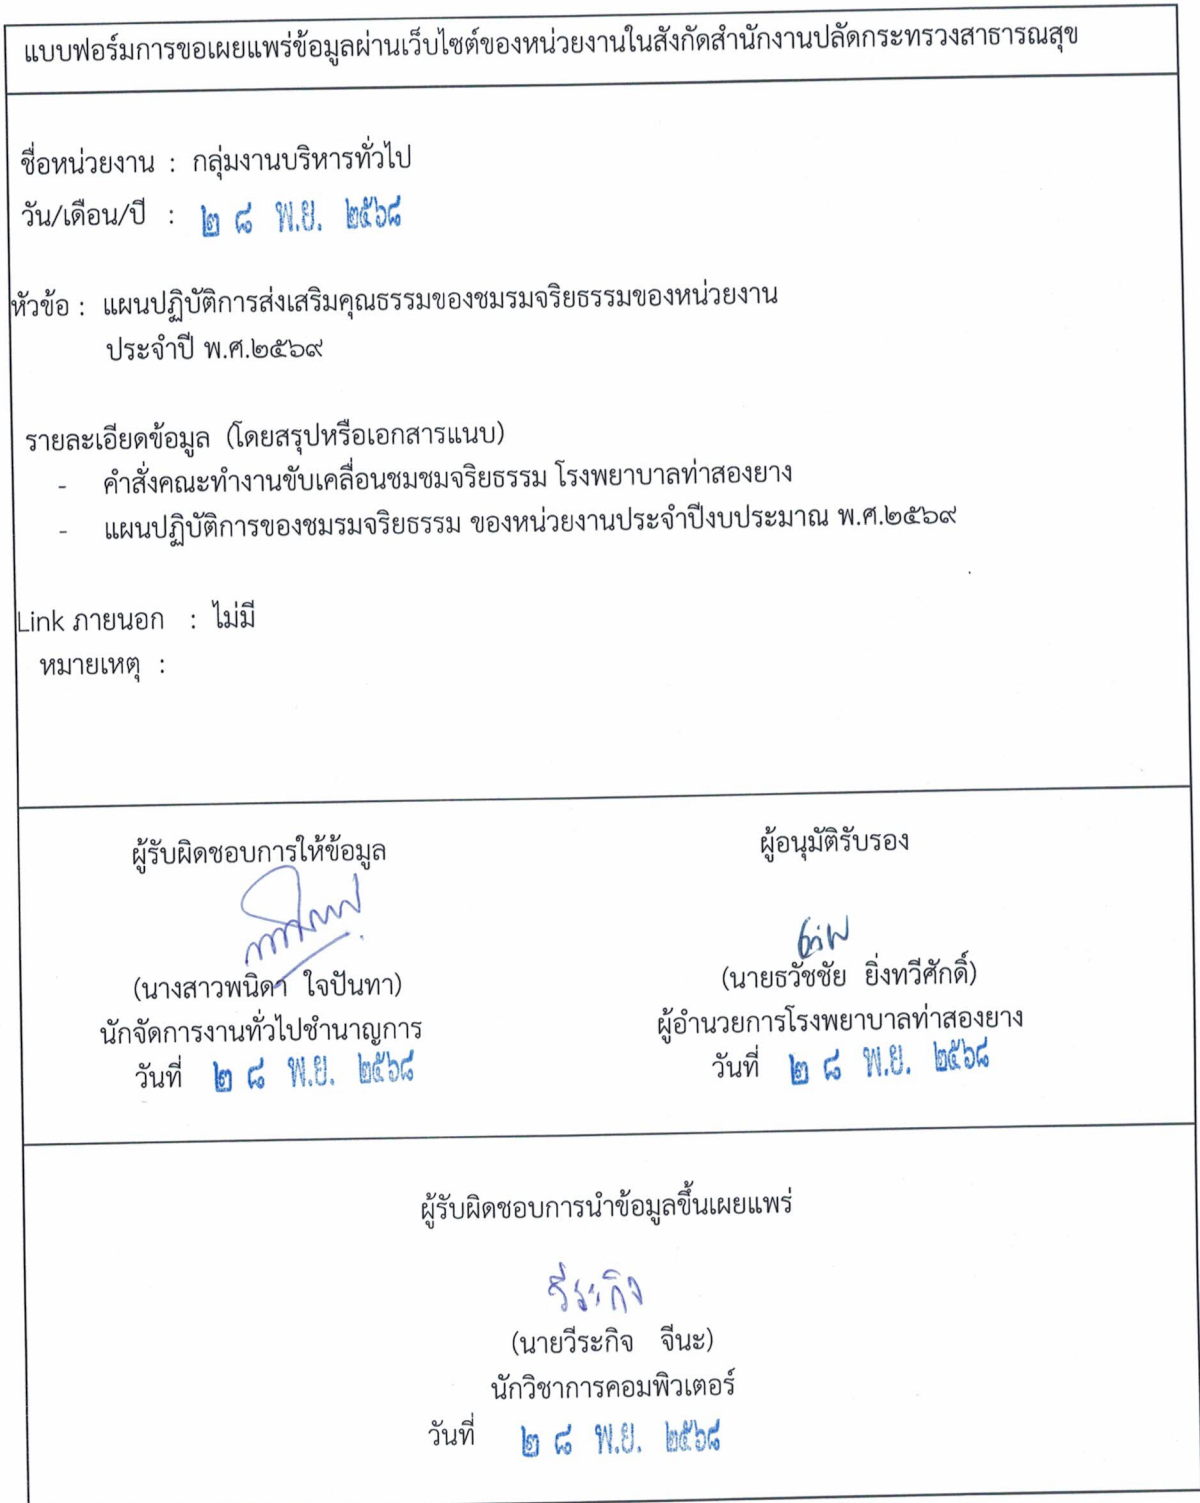 แบบฟอร์มการขอเผยแพร่ข้อมูลผ่านเว็บไซต์ของหน่วยงานในสังกัดสำนักงานปลัดกระทรวงสาธารณสุข
ชื่อหน่วยงาน : กลุ่มงานบริหารทั่วไป
วัน/เดือน/ปี : ๒ ๘ พ.ย. ๒๕๖๘
หัวข้อ : แผนปฏิบัติการส่งเสริมคุณธรรมของชมรมจริยธรรมของหน่วยงาน
ประจำปี พ.ศ.๒๕๖๙
รายละเอียดข้อมูล (โดยสรุปหรือเอกสารแนบ)
- คำสั่งคณะทำงานขับเคลื่อนชมชมจริยธรรม โรงพยาบาลท่าสองยาง
- แผนปฏิบัติการของชมรมจริยธรรม ของหน่วยงานประจำปีงบประมาณ พ.ศ.๒๕๖๙
Link ภายนอก : ไม่มี
หมายเหตุ :
ผู้รับผิดชอบการให้ข้อมูล
(นางสาวพนิดา ใจปันทา)
นักจัดการงานทั่วไปชำนาญการ
วันที่ ๒ ๘ พ.ย. ๒๕๖๘
ผู้อนุมัติรับรอง
(นายธวัชชัย ยิ่งทวีศักดิ์)
ผู้อำนวยการโรงพยาบาลท่าสองยาง
วันที่ ๒ ๘ พ.ย. ๒๕๖๘
ผู้รับผิดชอบการนำข้อมูลขึ้นเผยแพร่
วีระกิจ
(นายวีระกิจ จีนะ)
นักวิชาการคอมพิวเตอร์
วันที่ ๒ ๘ พ.ย. ๒๕๖๘